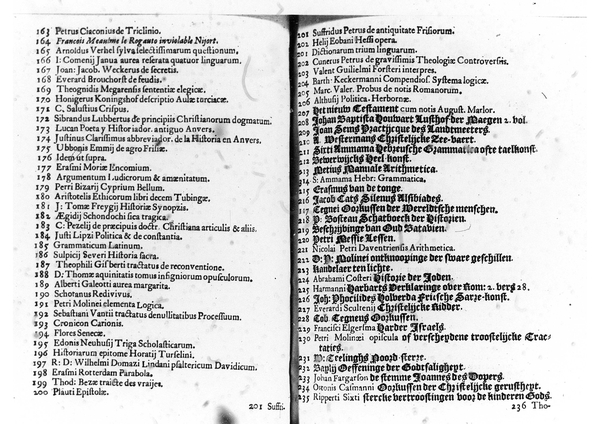 163 Petrus Ciaconius de Triclinio.
164 Francois Meausme le Rogauto inviolable Nijort.
165 Arnoldus Verhel sylva selectissimarum quæstionum.
166 I: Comenij Janua aurea reserata quatuor linguarum.
167 Joan: Jacob. Weckerus de secretis.
168 Everard Brouchorst de feudis.
169 Theognidis Megarensis sententiæ elegicæ.
170 Honigerus Koningshof descriptio Aulæ torciacæ.
171 C, Salustius Crispus.
172 Sibrandus Lubbertus de principiis Christianorum dogmatum.
173 Lucan Poeta y Historiador. antiguo Anvers.
174 Justinus Clarissimus abbreviador. de la Historia en Anvers.
175 Ubbonis Emmij de agro Frisiæ.
176 Idem ut supra.
177 Erasmi Moriæ Encomium.
178 Argumentum Ludicrorum & amænitatum.
179 Petri Bizarij Cyprium Bellum.
180 Aristotelis Ethicorum libri decem Tubingæ.
181 J: Tomæ Freygij Historiæ Synopsis.
182 Ægidij Schondochi sica tragica.
183 C: Pezelij de præcipuis doctr. Christiana articulis & aliis.
184 Justi Lipzi Politica & de constantia.
185 Grammaticum Latinum.
186 Sulpicij Severi Historia sacra.
187 Theophili Gisberti tractatus de reconventione.
188 D: Thomæ aquinitatis tomus insigniorum opusculorum.
189 Alberti Galeotti aurea margarita.
190 Schotanus Redivivus.
191 Petri Molinei elementa Logica.
192 Sebastiani Vantii tractatus denullitatibus Processuum.
193 Cronicon Carionis.
194 Flores Senecæ.
195 Edonis Neuhusij Triga Scholasticarum.
196 Historiarum epitome Horatij Turselini.
197 R: D: Wilhelmi Domazi Lindani psaltericum Davidicum.
198 Erasmi Rotterdam Parabola.
199 Thod: Bezæ traicte des vraijes.
200 Plauti Epistolæ.
201 Suffri-
201 Suffridus Petrus de antiquitate Frisiorum.
202 Helij Eobani Hessi opera.
201 Dictionarum trium linguarum.
202 Cunerus Petrus de gravissimis Theologiæ Controversiis.
203 Valent Guilielmi Forsteri interpres.
204 Barth: Keckermanni Compendiosf. Systema logicæ.
205 Marc. Valer. Probus de notis Romanorum.
206 Althusij Politica. Herbornæ.
207 Het nieuw Testament cum notis August. Marlor.
208 Johan Baptista Houwart Lusthof der Maegen 2. vol.
209 Joan Sems Practijcque des Landtmeeters.
210 A. Westermans Christelijcke Zee-vaert.
211 Sixti Ammama Hebreusche Grammatica ofte taelkonst.
212 Beverwijcks Heel-konst.
213 Metius Manuale Arithmetica.
214 S: Ammama Hebr: Grammatica.
215 Erasmus van de tonge.
216 Jacob Cats Silenus Alcibiades.
217 Tegnei Oorkussen der Wereldtsche menschen.
218 P. Bosteau Schatboeck der Historien.
219 Beschrijbinge van Oud Batavien.
220 Petri Messie Lessen.
221 Nicolai Petri Daventriensis Arithmetica.
222 D: P: Molinei ontknoopinge der sware geschillen
223 Kandelaer ten lichte.
224 Abrahami Costeri Historie der Joden.
225 Harmanni Harbarts Verklaringe ober Rom: 2. vers 28.
226 Joh: Phocilides Holwerda Friesche Sarze-konst.
227 Everardi Scultenij Christelijcke Ridder.
228 Cob: Tegneus Oorkussen.
229 Francisci Elgersma Harder Israels.
230 Petri Molinæi opuscula of verscheydene troostelijcke Tractaties.
231 W: Teelinghs Noord-sterre.
232 Baylij Oeffeninge der Godtsaligheyt.
233 Johan Fargarson de stemme Joannes des Dopers.
234 Otronis Casmanni Oorkussen der Christelijcke gerustheyt.
235 Ripperti Sixti stercke vertroostingen voor de kinderen Gods.
236 Tho-